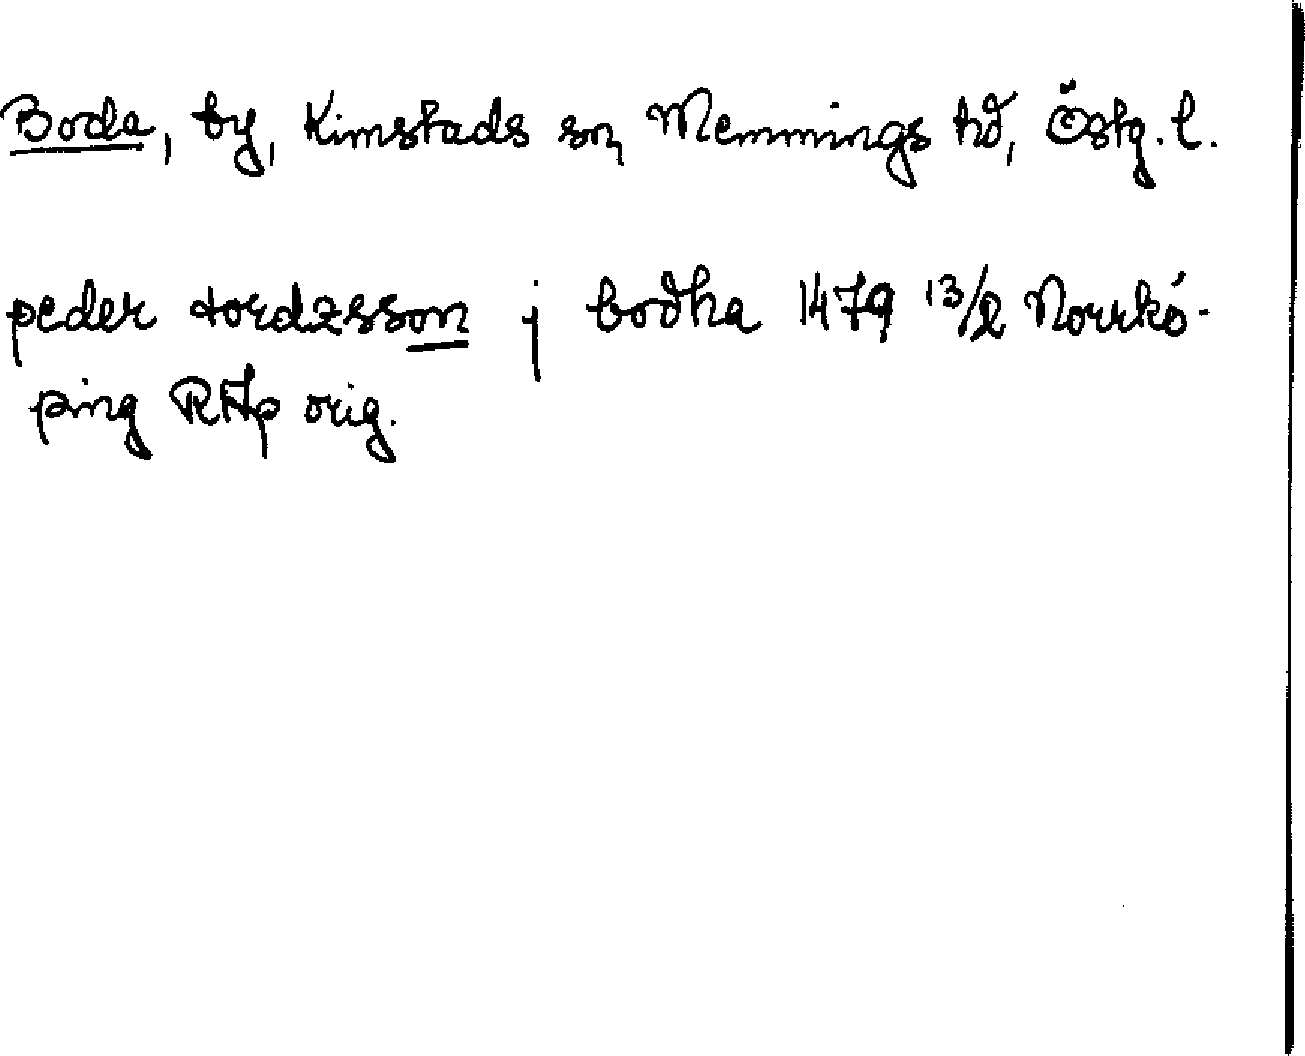 Boda, by, Kimstads sn, Memmings hd, Östg. l.
peder tordzsson j bodha 1479 13/2 Norrkö-
ping RAp orig.